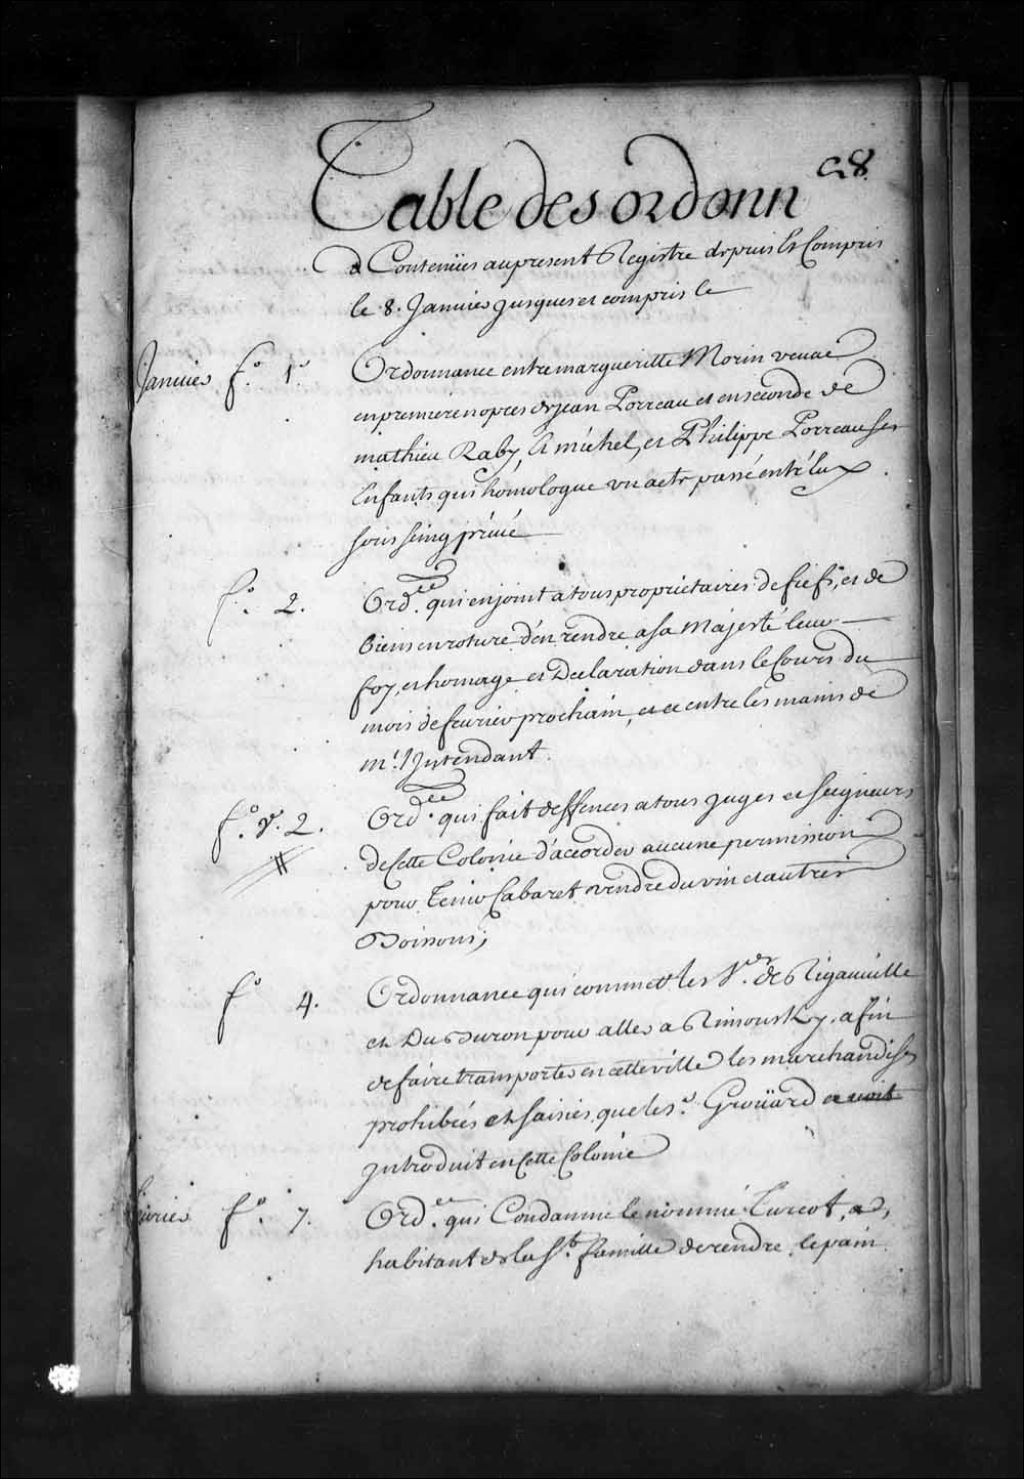 28.
Table des ordonn
Contenües au present Registre depuis Et Compris
le 8. Januier jusques et compris le
Januier f.o 1.o Ordonnance entre margueritte Morin veuue
en premiere nopces de jean Porreau et en seconde de
mathieu Raby, & michel, et Philippe Porreau ses
Enfants qui homologue un acte passé entr'eux
sous seing priué
f.o 2. Ord.ce qui enjoint a tous proprietaires de fiefs, et de
biens en roture d'en rendre a sa Majesté leur
foy, et homage et Declaration dans le Cours du
mois de feurier prochain, et ce entre les mains de
m.r l'Intendant.
f.o v.o 2. Ord.ce qui fait deffences a tous juges et seigneurs
de Cette Colonie d'accorder aucune permission
pour Tenir Cabaret vendre du vin et autres
Boissons;
f.o 4. Ordonnance qui commet les S.rs de Rigauuille
et Duburon pour aller a Rimousky, afin
de faire transporter en cette ville les marchandises
prohibées et saisies que le s.r Groüard avoit
introduit en Cette Colonie
f.o 7. Ord.ce qui Condamne le nommé Turcot,
habitant de la S.te famille de rendre le pain